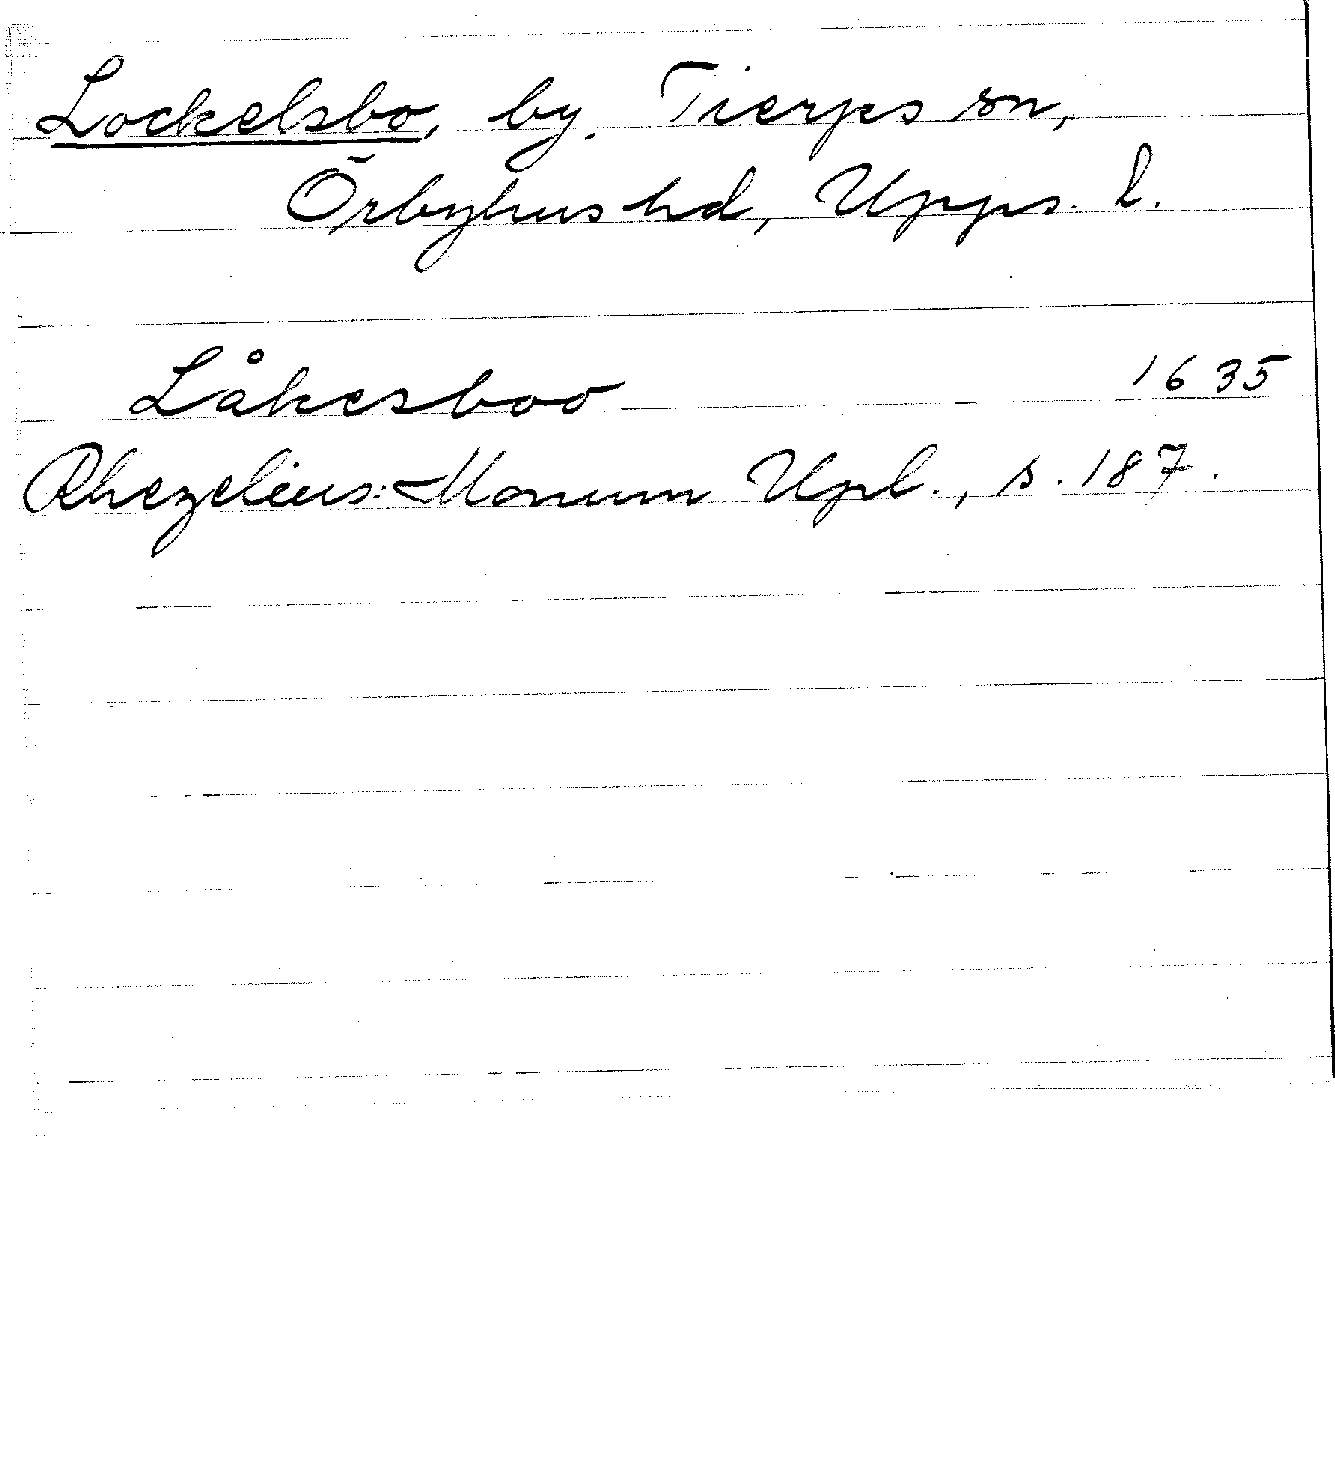 Lockelsbo, by. Tierps sn,
Örbyhus hd, Upps. l.
Låkesboo 1635
Rhezelius: Monum Upl., s. 187.